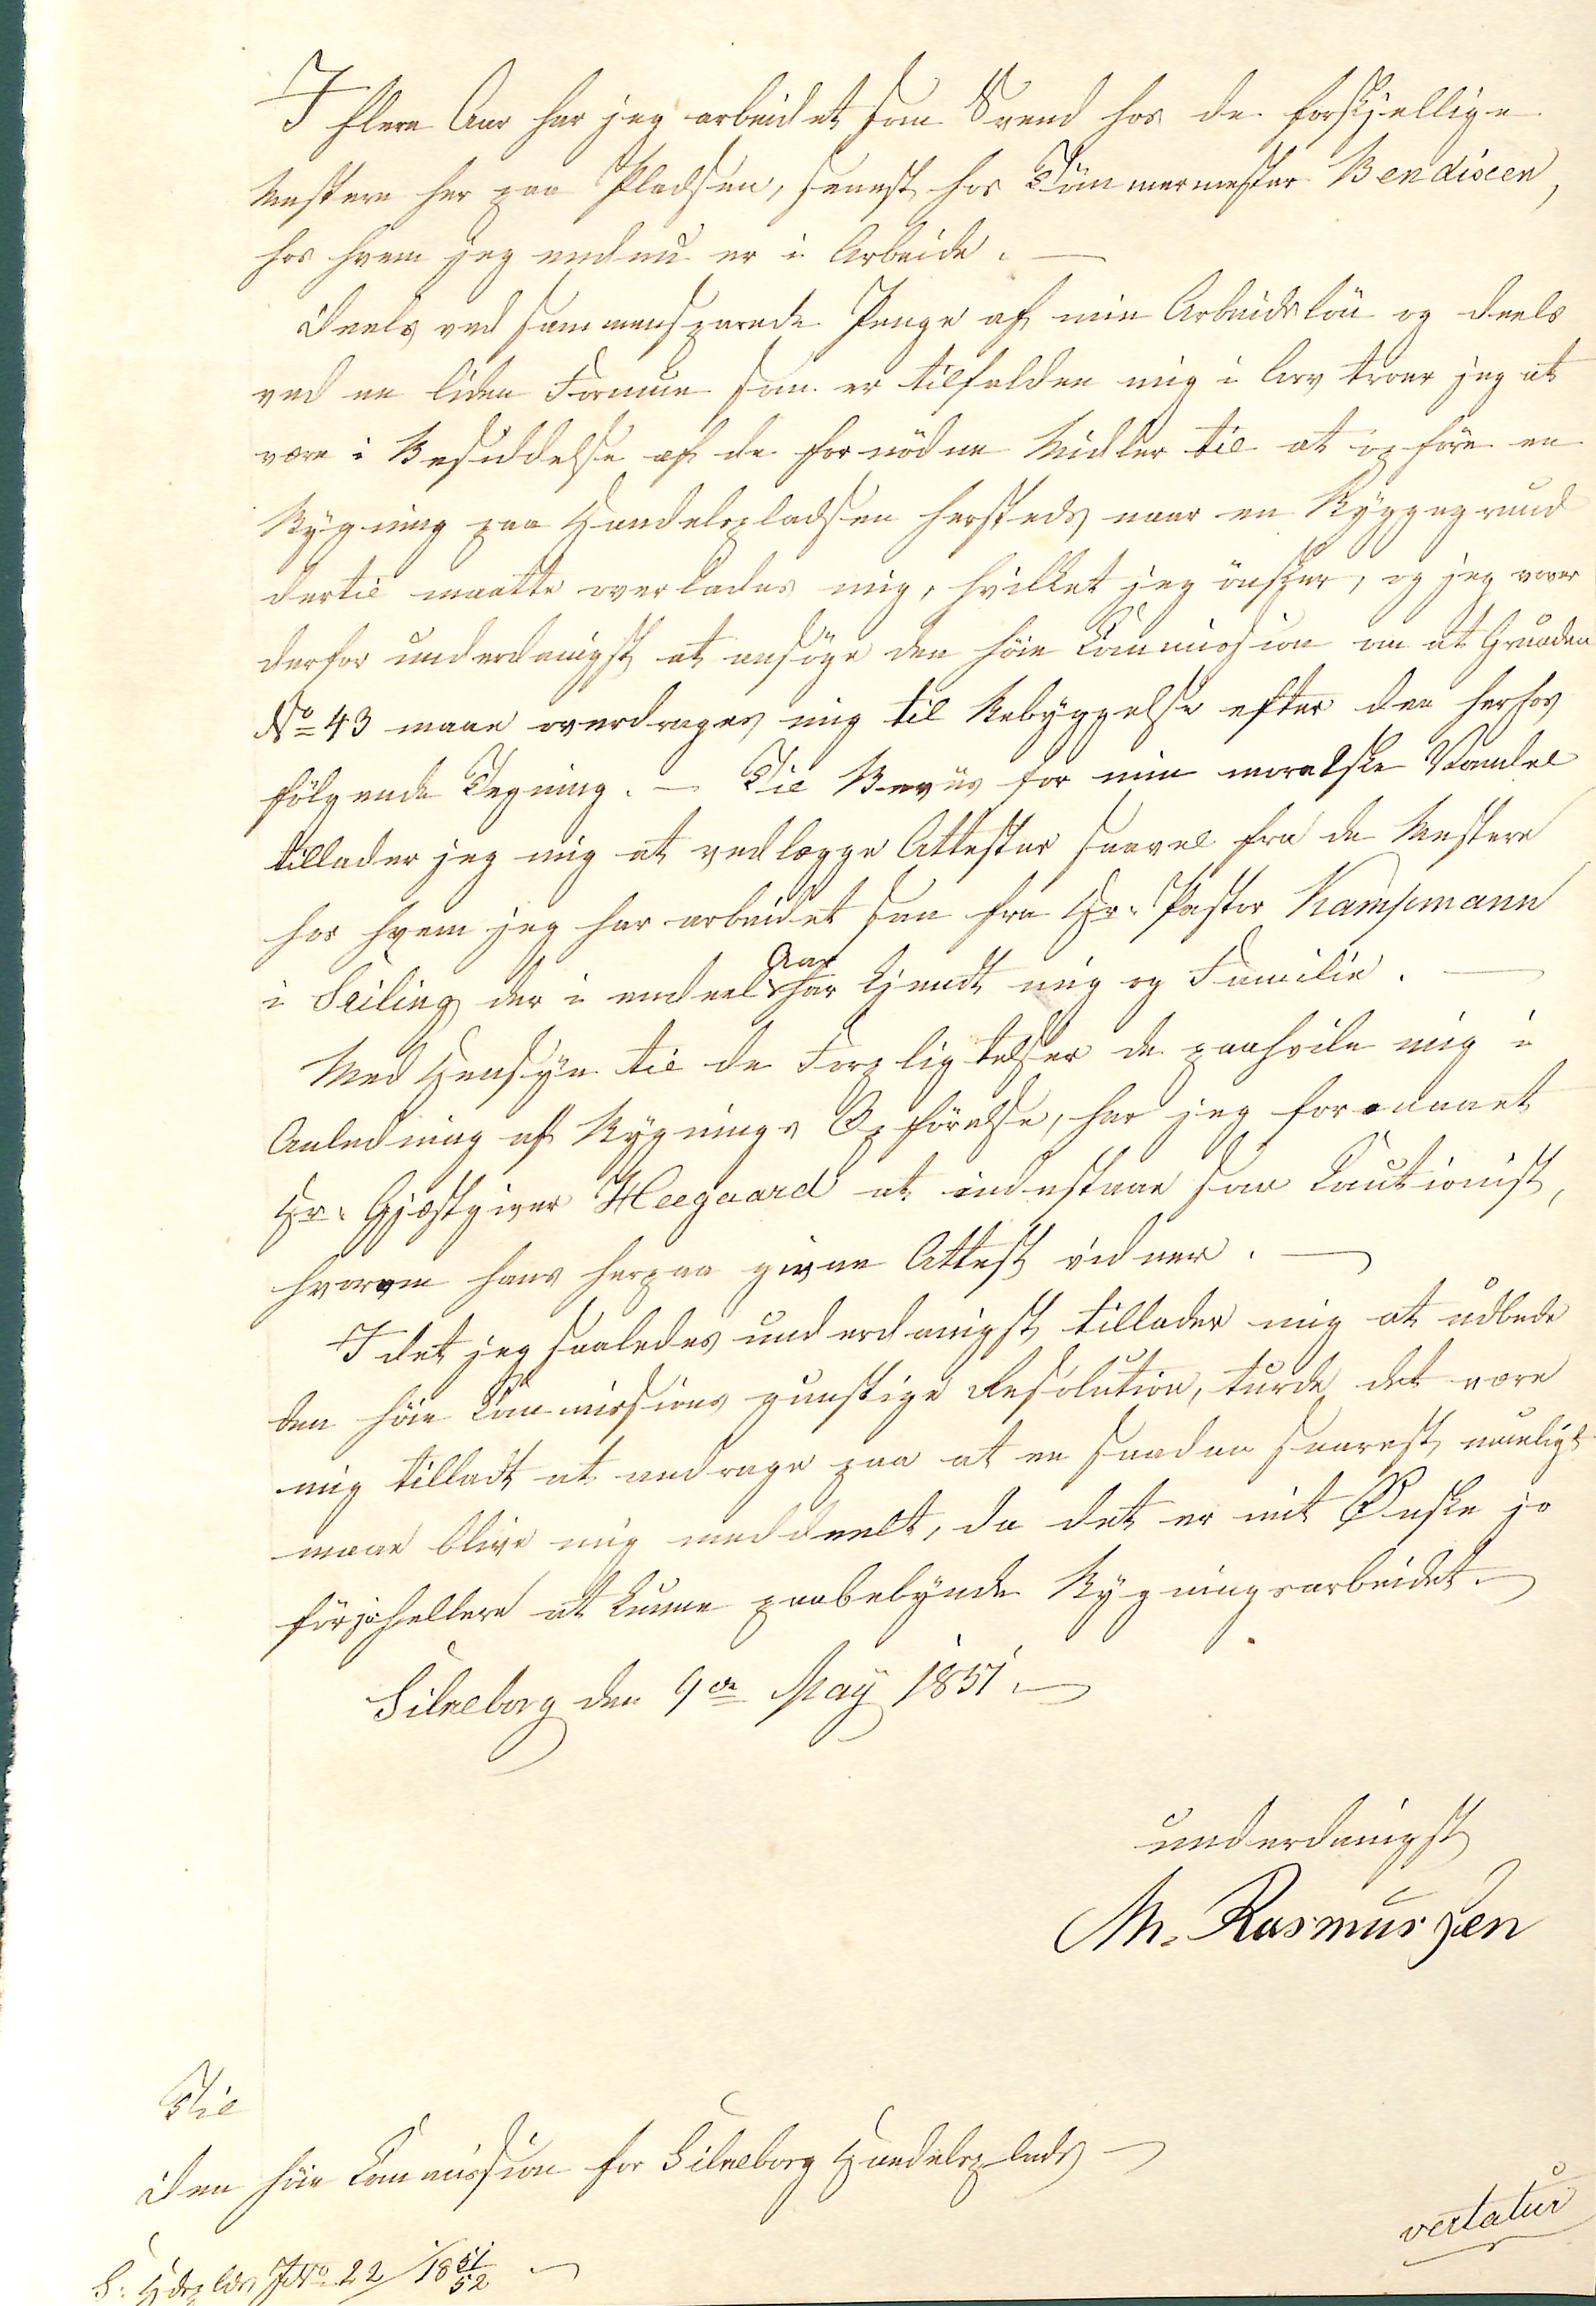 I flere Aar har jeg arbeidet som Svend hos de forskjellige
Mestere her paa Pladsen, senest hos Tömmermester Bendixen,
hos hvem jeg endnu er i Arbeide. —
Deels ved sammensparede Penge af min Arbeidslön og deels
ved en liden Formue som er tilfalden mig i Arv troer jeg at
være i Besiddelse af de fornödne Midler til at opföre en
Bygning paa Handelspladsen hersteds naar en Byggegrund
dertil maatte overlades mig, hvilket jeg önsker, og jeg vover
derfor underdanigst at ansöge den höie Commission om at Grunden
No 43 maae overdrages mig til Bebyggelse efter den herhos
fölgende Tegning. — Til Beviis for min moralske Vandel
tillader jeg mig at vedlægge Attester saavel fra de Mestere
hos hvem jeg har arbeidet som fra Hr. Pastor Kampmann
i Seiling der i endeel Aar har kjendt mig og Familie. —
Med Hensyn til de Forpligtelser de paahvile mig i
Anledning af Bygnings Opförelse, har jeg formaaet
Hr. Gjæstgiver Heegaard at indestaae som Cautionist,
hvorom hans herpaa givne Attest vidner. —
I det jeg saaledes underdanigst tillader mig at udbede
den höie Commissions gunstige Resolution, turde det være
mig tilladt at andrage paa at en saadan snarest mueligt
maae blive mig meddeelt, da det er mit Ønske jo
för jo hellere at kunne paabebynde Bygningsarbeidet. —
Silkeborg den 9de May 1851. —
underdanigst
M. Rasmussen
Til
Den höie Commission for Silkeborg Handelsplads —
S: Hdsplds J No 22 / 18 51/52 —
vertatur